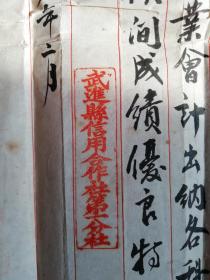 業會計出納各科
間成績優良特
武進縣信用合作社第一分社
年二月